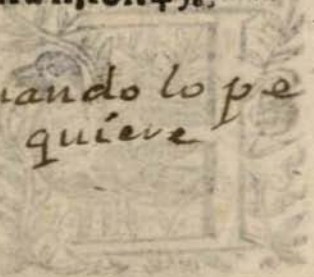 uando lo pe
quiere